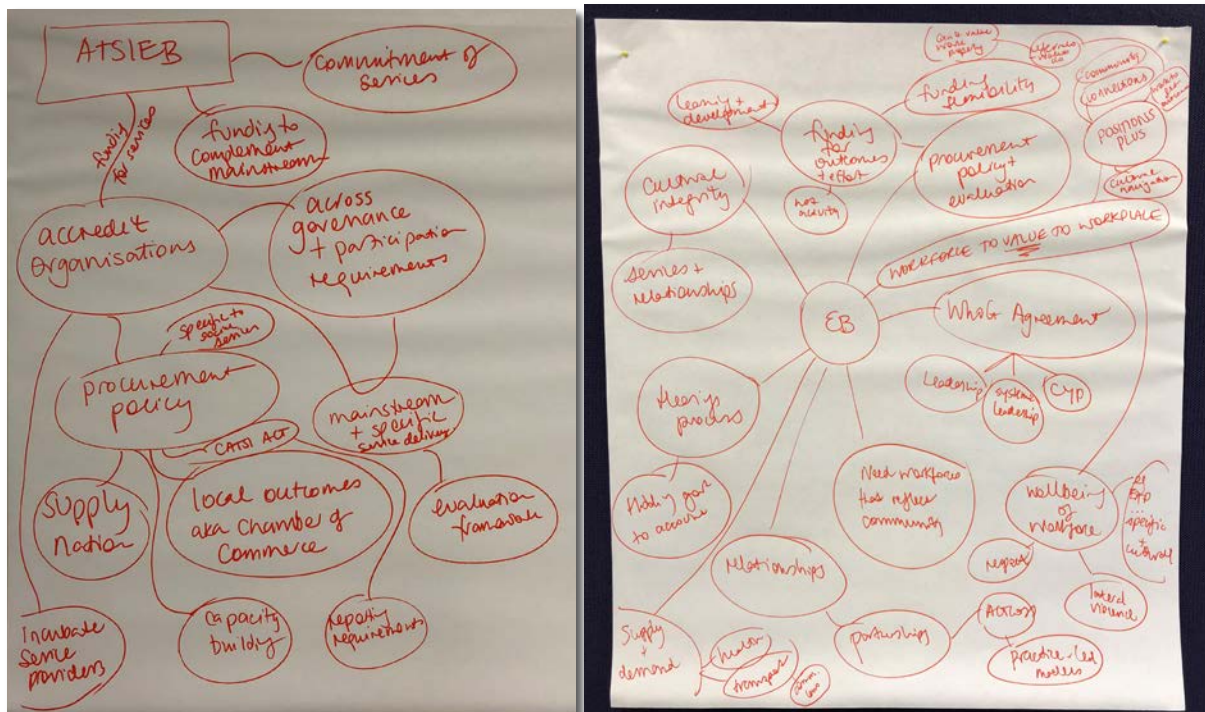 ATSIEB
commitment of
services
funding
for services
funding to
complement
mainstream
accredit
organisations
across
governance
+ participation
requirements
specific to
some
services
procurement
policy
mainstream
+ specific
service delivery
CATSI ACT
supply
nation
local outcomes
aka chamber of
commerce
evaluation
framework
Incubate
service
providers
capacity
building
reporting
requirements
learning +
development
funding
flexibility
community
connections
POSITIONS
PLUS
funding
for
outcomes
+ effort
procurement
policy +
evaluation
cultural
integrity
not
activity
cultural
navigation
WORKFORCE TO VALUE TO WORKPLACE
services +
relationships
EB
WhoG Agreement
leadership
systemic
leadership
CYP
Hearings
process
Holding govt
to account
Need workforce
that reflect
community
wellbeing
of
workforce
EAP
specific
+
cultural
respect
lateral
violence
relationships
partnerships
ACTCOSS
practice-led
models
supply
+
demand
transport